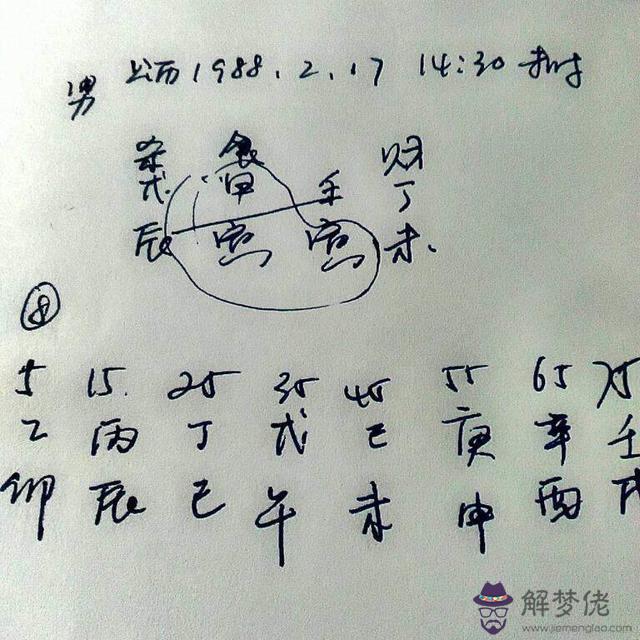 男 公历1988.2.17 14:30时
杀 食 财
戊 甲 壬 丁
辰 寅 寅 未
⑧
5 15. 25 35 45 55 65 75
乙 丙 丁 戊 己 庚 辛 壬
卯 辰 巳 午 未 申 酉 戌
解梦佬
www.jiemenglao.com